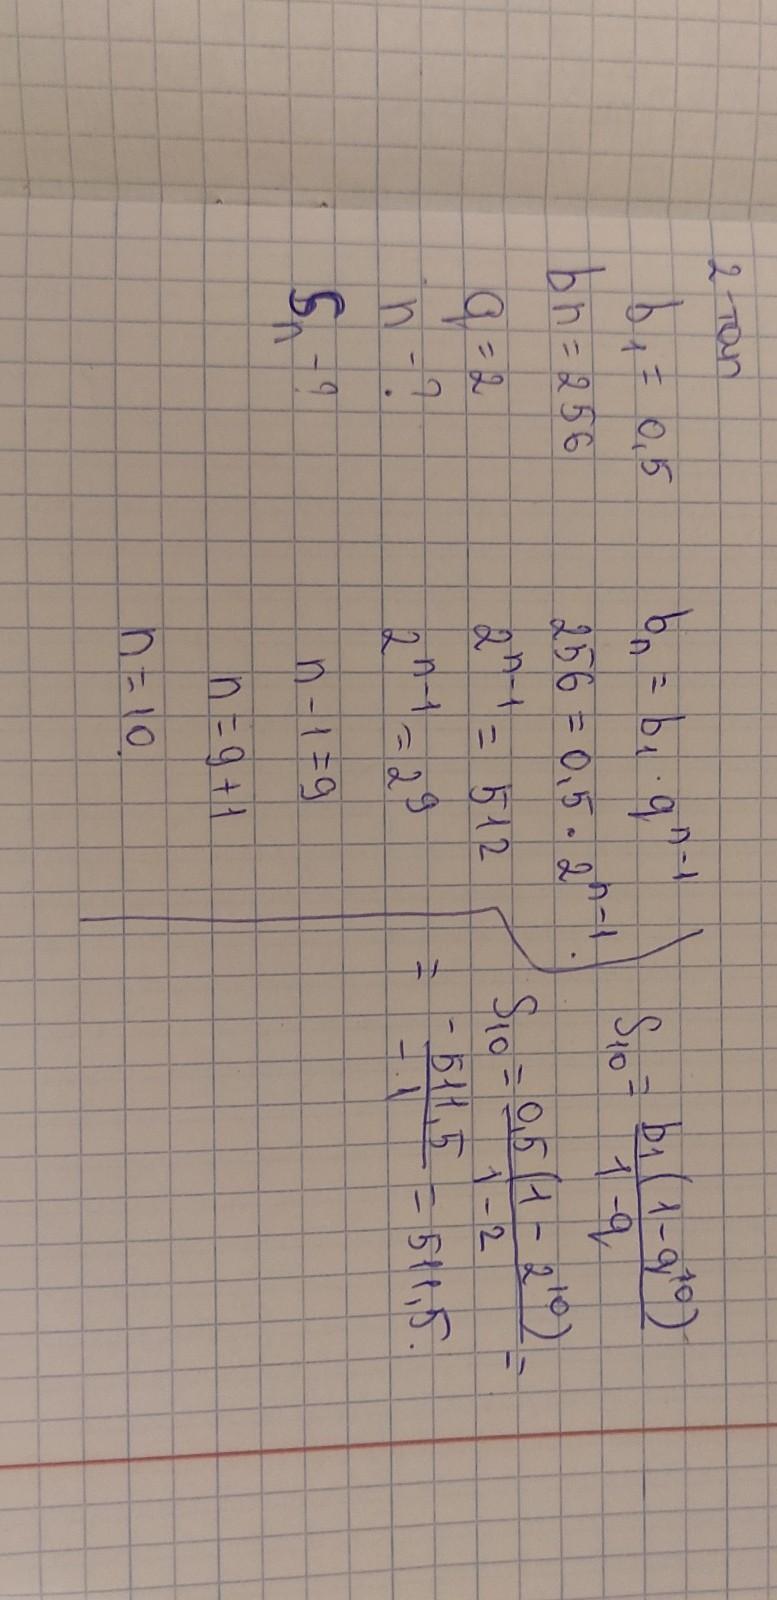 2-тап
b₁ = 0,5
bn = 256
q = 2
n - ?
Sₙ - ?
bₙ = b₁ · qⁿ⁻¹
256 = 0,5 · 2ⁿ⁻¹.
2ⁿ⁻¹ = 512
2ⁿ⁻¹ = 2⁹
n - 1 = 9
n = 9 + 1
n = 10.
S₁₀ = b₁(1 - q¹⁰) / 1 - q
S₁₀ = 0,5(1 - 2¹⁰) / 1 - 2 =
= -511,5 / -1 = 511,5.